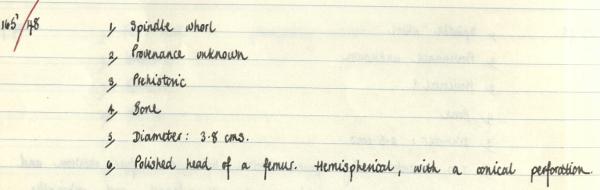 165'/48 1, Spindle whorl
2, Provenance unknown
3, Prehistoric
4, Bone
5, Diameter: 3.8 cms.
6, Polished head of a femur. Hemispherical, with a conical perforation.